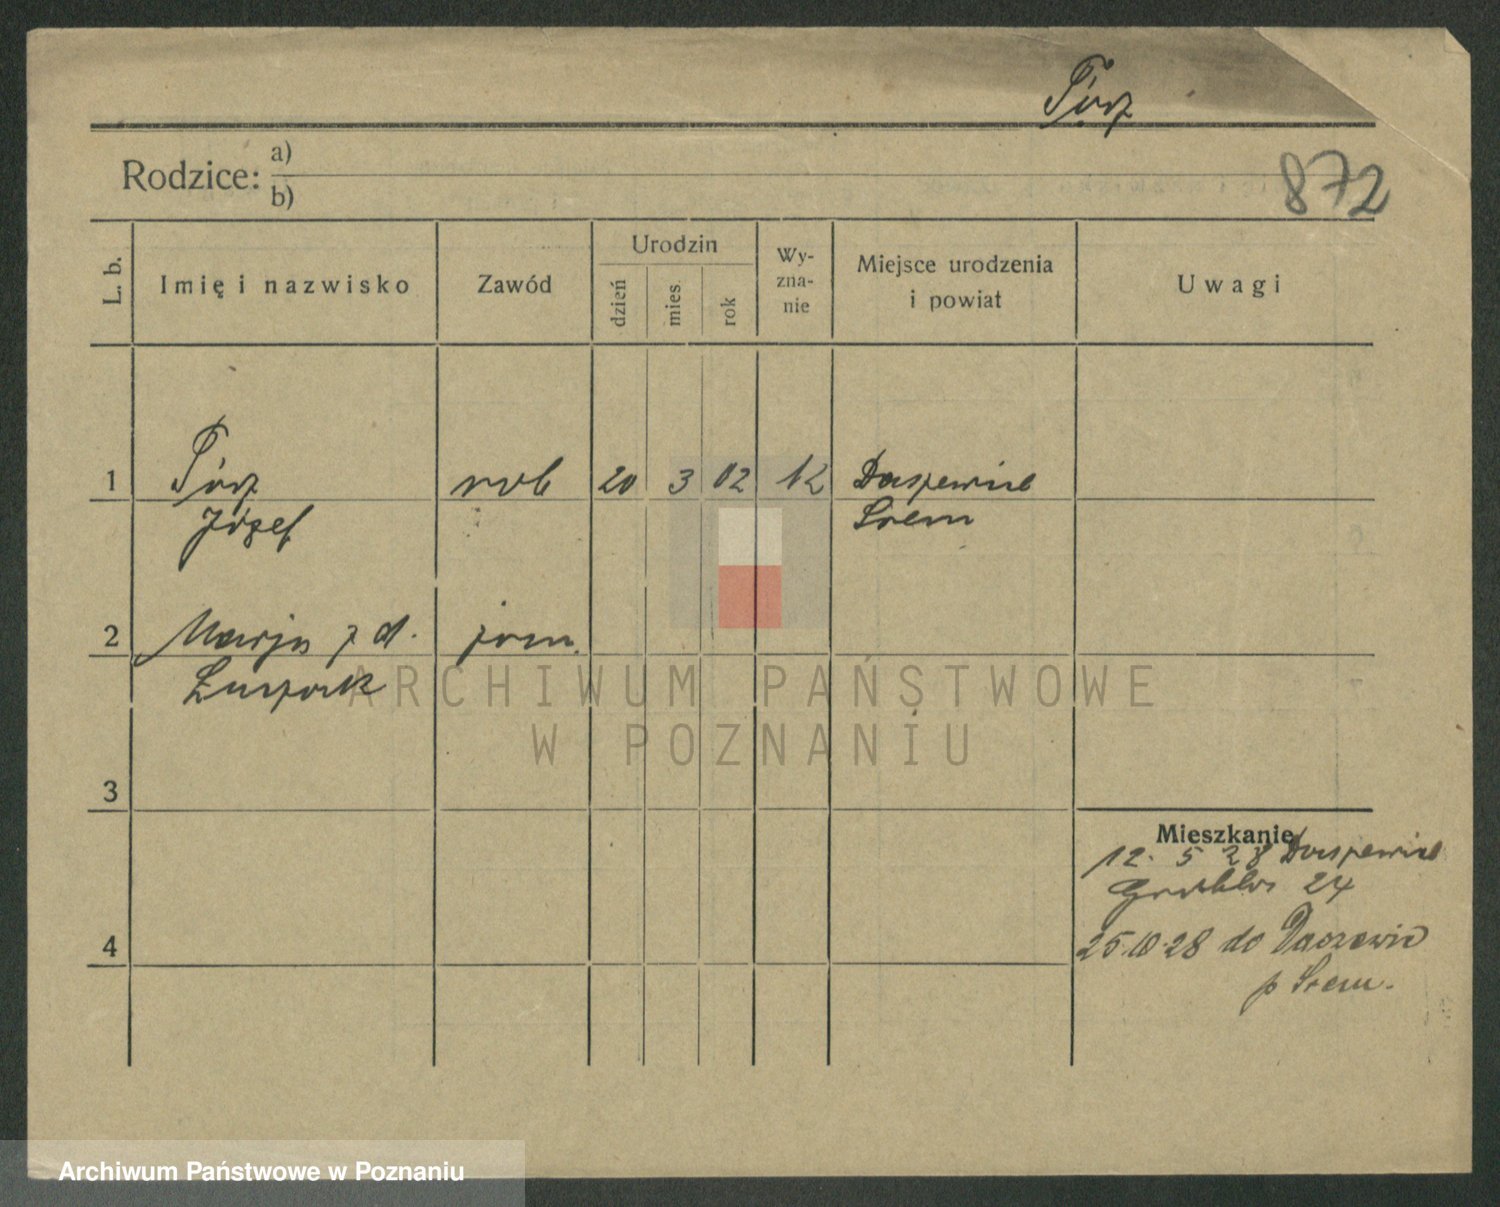 Tórz
872
Rodzice: a)
b)
L. b.
Imię i nazwisko
Zawód
Urodzin
dzień
mies
rok
Wy-
zna-
nie
Miejsce urodzenia
i powiat
Uwagi
1
Tórz
rob
20 3 02 K
Daszewice
Józef
Śrem
2
Marja z d.
żona
3
Mieszkanie
12. 5 28 Daszewice
24
4
25.10.28 do Daszewic
p Śrem.
ARCHIWUM PAŃSTWOWE
W POZNANIU
Archiwum Państwowe w Poznaniu